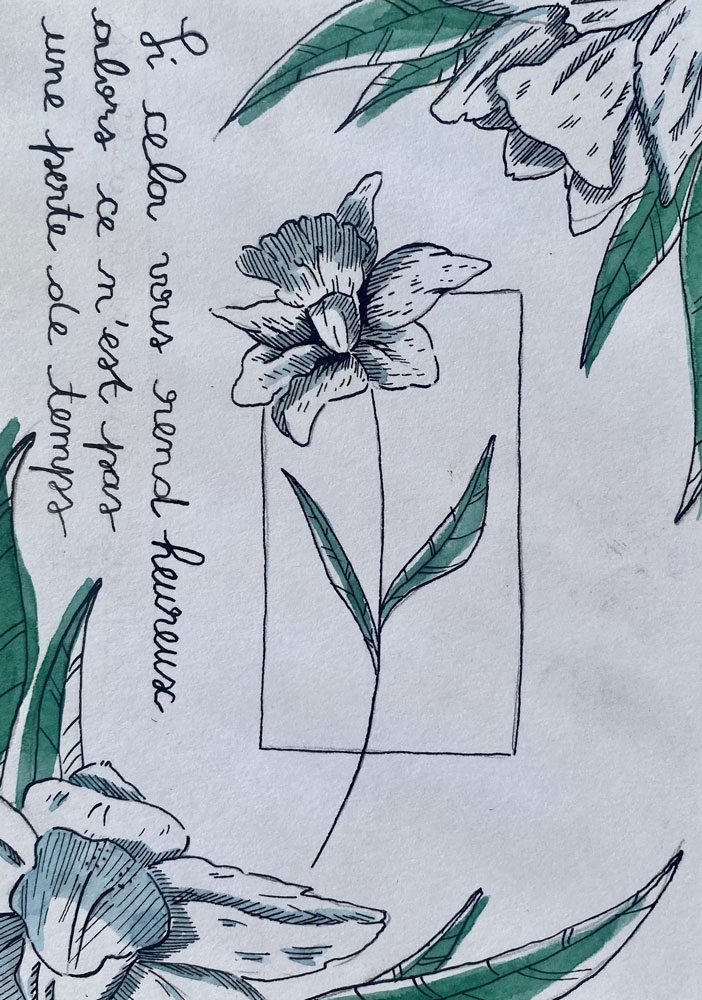 Si cela vous rend heureux,
alors ce n'est pas
une perte de temps